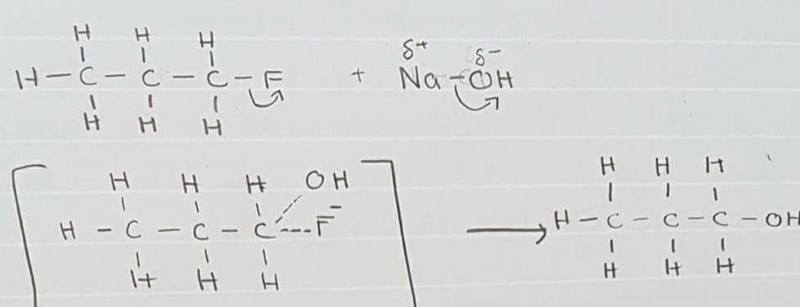 H H H
H - C - C - C - F + δ+ Na - δ- OH
H H H
H H H OH
H - C - C - C --- F -
H H H
H H H
H - C - C - C - OH
H H H